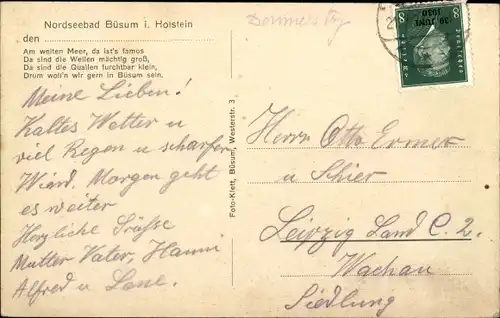 Nordseebad Büsum i. Holstein
den
Am weiten Meer, da ist's famos
Da sind die Wellen mächtig groß,
Da sind die Quallen furchtbar klein,
Drum woll'n wir gern in Büsum sein.
Meine Lieben!
Kaltes Wetter u
viel Regen u scharfer
Wind. Morgen geht
es weiter
Herzliche Grüsse
Mutter Vater, Hanni
Alfred u Lene.
Foto-Klett, Büsum, Westerstr. 3
8 30. JUNI 1930 8
Herrn Otto Ermer
u Schier
Leipzig Land C. 2.
Wachau
Siedlung